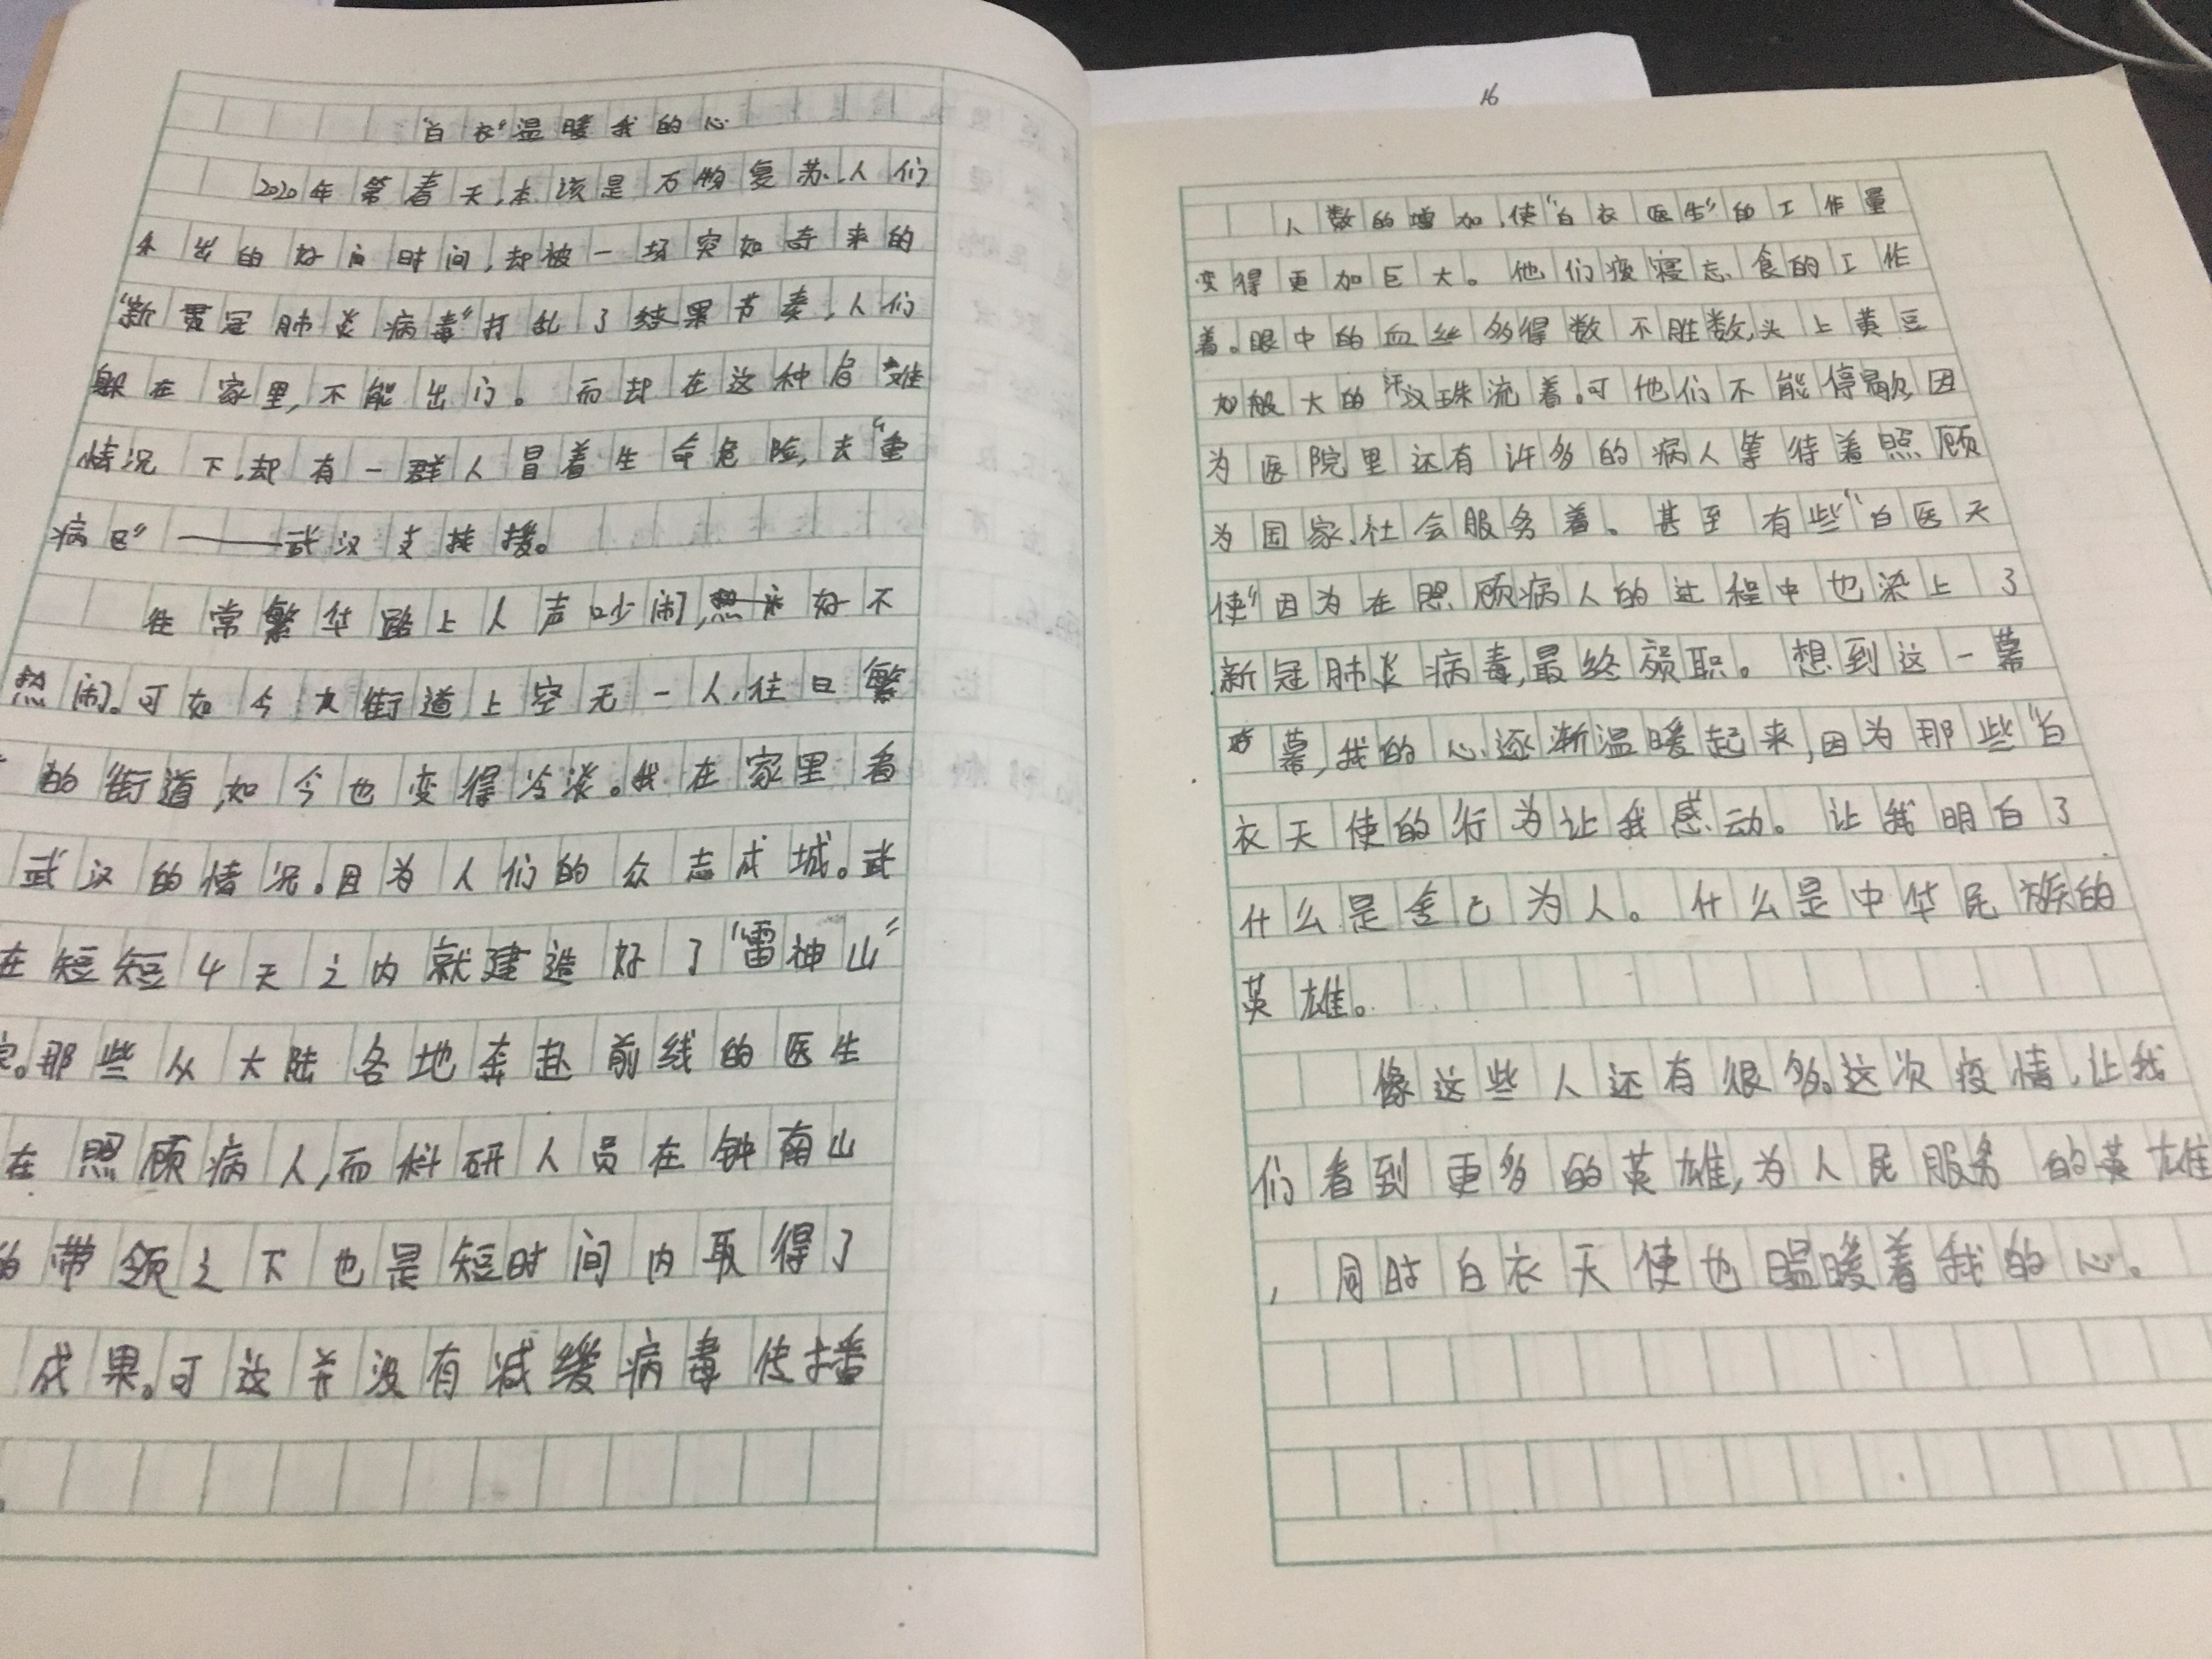 “白衣”温暖我的心
2020年第春天,本该是万物复苏、人们
外出的好间时间,却被一场突如奇来的
“新冠肺炎病毒”打乱了结果节奏,人们
躲在家里,不能出门。而却在这种
情况下,却有一群人冒着生命危险,去“重
病区”——武汉支援。
往常繁华路上人声吵闹,好不
热闹。可如今大街道上空无一人,往日繁
的街道,如今也变得冷淡。我在家里看
武汉的情况。因为人们的众志成城。武
在短短4天之内就建造好了“雷神山”
那些从大陆各地奔赴前线的医生
在照顾病人,而科研人员在钟南山
的带领之下也是短时间内取得了
成果。可这并没有减缓病毒传播
16
人数的增加,使“白衣医生”的工作量
变得更加巨大。他们废寝忘食的工作
着。眼中的血丝多得数不胜数,头上黄豆
般大的汗珠流着。可他们不能停歇,因
为医院里还有许多的病人等待着照顾
为国家、社会服务着。甚至有些“白医天
使”因为在照顾病人的过程中也染上了
新冠肺炎病毒,最终殒职。想到这一幕
幕,我的心逐渐温暖起来,因为那些“白
衣天使的行为让我感动。让我明白了
什么是舍己为人。什么是中华民族的
英雄。
像这些人还有很多。这次疫情,让我
们看到更多的英雄,为人民服务的英雄
,同时白衣天使也温暖着我的心。